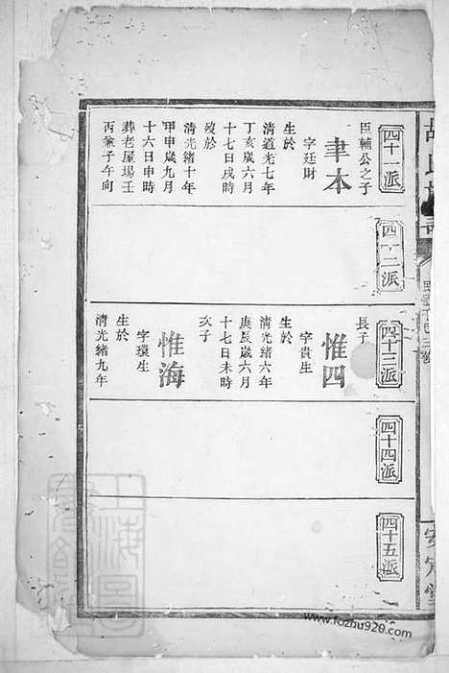 四十一派
臣輔公之子
聿本
字廷財
生於
清道光七年
丁亥歲六月
十七日戌時
歿於
清光緒十年
甲申歲九月
十六日申時
葬老屋場壬
丙兼子午向
四十二派
四十三派
長子
惟四
字貴生
生於
清光緒六年
庚辰歲六月
十七日未時
次子
惟海
字璞生
生於
清光緒九年
四十四派
四十五派
安定堂
www.fozhu920.com